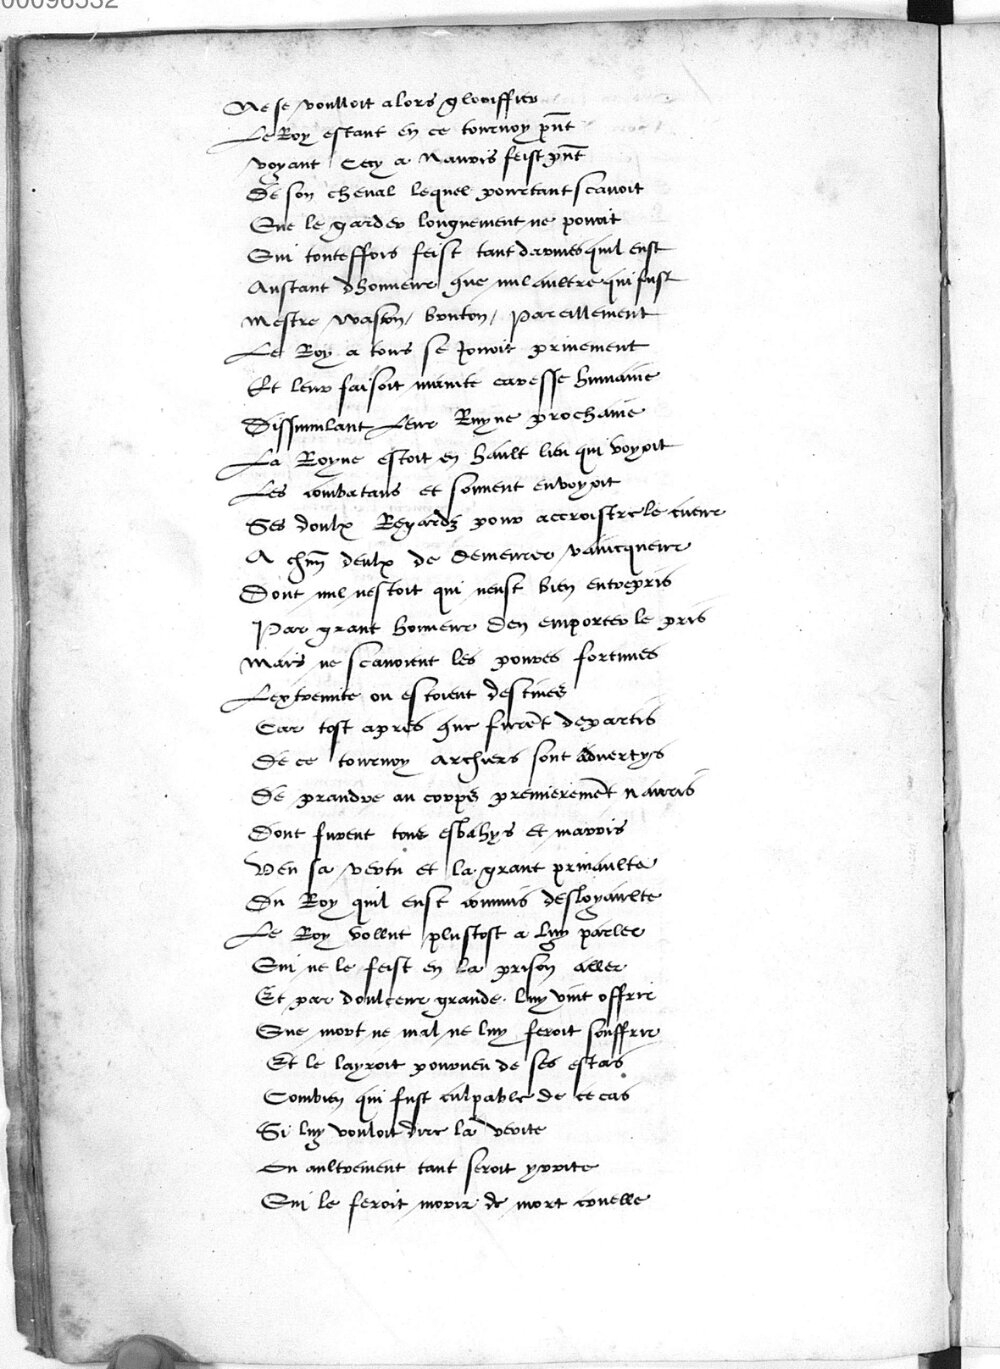 00096532
Ne se voulloit alors gloriffier
Le Roy estant en ce tournoy pñt
voyant Cecy a Navris feist pñt
De son cheval lequel pourtant scavoit
Que le garder longuement ne povoit
Qui touteffois feist tant darmes quil eust
Austant dhonneur que nul aultre qui fust
Mestre waston, breton, Pareillement
Le Roy a tous se Jouoit privement
Et leur faisoit mainte caresse humaine
Dissimulant Leur Ruyne prochaine
La Royne estoit en hault lieu qui voyoit
Les combatans et souvent envoyoit
Ses doulx Regardz pour accroistre le cueur
A chũn deulx de demeurer vaincqueur
Dont nul nestoit qui neust bien entrepris
Par grant honneur den emporter le pris
Mais ne scavoient les povres fortunes
Lextremite ou estoient destines
Car tost apres que furẽt departis
De ce tournoy archiers sont advertys
De prandre au corps premieremẽt navris
Dont furent tous esbahys et marris
Veu sa vertu et la grant privaulte
Du Roy quil eust commis desloyaulte
Le Roy vollut plustost a luy parler
Qui ne le feist en la prison aller
Et par doulceur grande luy vint offrir
Que mort ne mal ne luy feroit souffrir
Et le layroit pourveu de ses estas
Combien qui fust culpable de ce cas
Si luy vouloit dire la verite
Ou aultrement tant seroit yrrite
Qui le feroit morir de mort cruelle